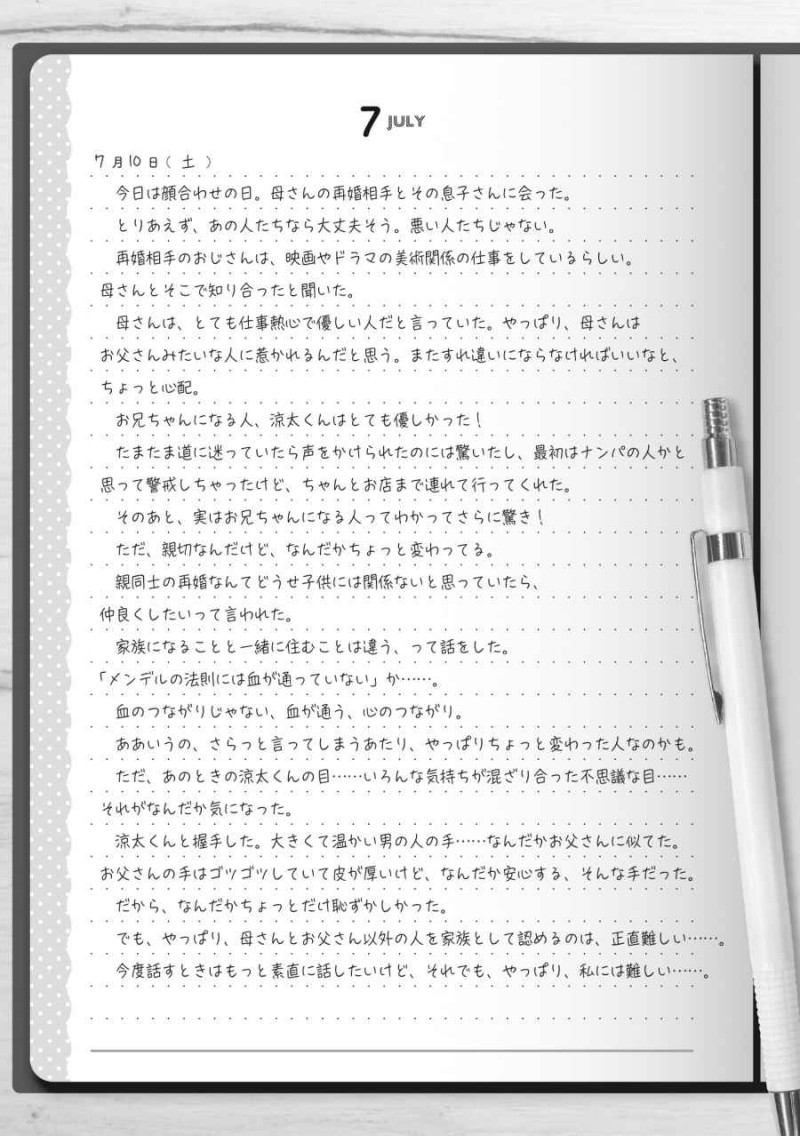 7 JULY
7月10日(土)
今日は顔合わせの日。母さんの再婚相手とその息子さんに会った。
とりあえず、あの人たちなら大丈夫そう。悪い人たちじゃない。
再婚相手のおじさんは、映画やドラマの美術関係の仕事をしているらしい。
母さんとそこで知り合ったと聞いた。
母さんは、とても仕事熱心で優しい人だと言っていた。やっぱり、母さんは
お父さんみたいな人に惹かれるんだと思う。またすれ違いにならなければいいなと、
ちょっと心配。
お兄ちゃんになる人、涼太くんはとても優しかった！
たまたま道に迷っていたら声をかけられたのには驚いたし、最初はナンパの人かと
思って警戒しちゃったけど、ちゃんとお店まで連れて行ってくれた。
そのあと、実はお兄ちゃんになる人ってわかってさらに驚き！
ただ、親切なんだけど、なんだかちょっと変わってる。
親同士の再婚なんてどうせ子供には関係ないと思っていたら、
仲良くしたいって言われた。
家族になることと一緒に住むことは違う、って話をした。
「メンデルの法則には血が通っていない」か……。
血のつながりじゃない、血が通う、心のつながり。
ああいうの、さらっと言ってしまうあたり、やっぱりちょっと変わった人なのかも。
ただ、あのときの涼太くんの目……いろんな気持ちが混ざり合った不思議な目……
それがなんだか気になった。
涼太くんと握手した。大きくて温かい男の人の手……なんだかお父さんに似てた。
お父さんの手はゴツゴツしていて皮が厚いけど、なんだか安心する、そんな手だった。
だから、なんだかちょっとだけ恥ずかしかった。
でも、やっぱり、母さんとお父さん以外の人を家族として認めるのは、正直難しい……。
今度話すときはもっと素直に話したいけど、それでも、やっぱり、私には難しい……。